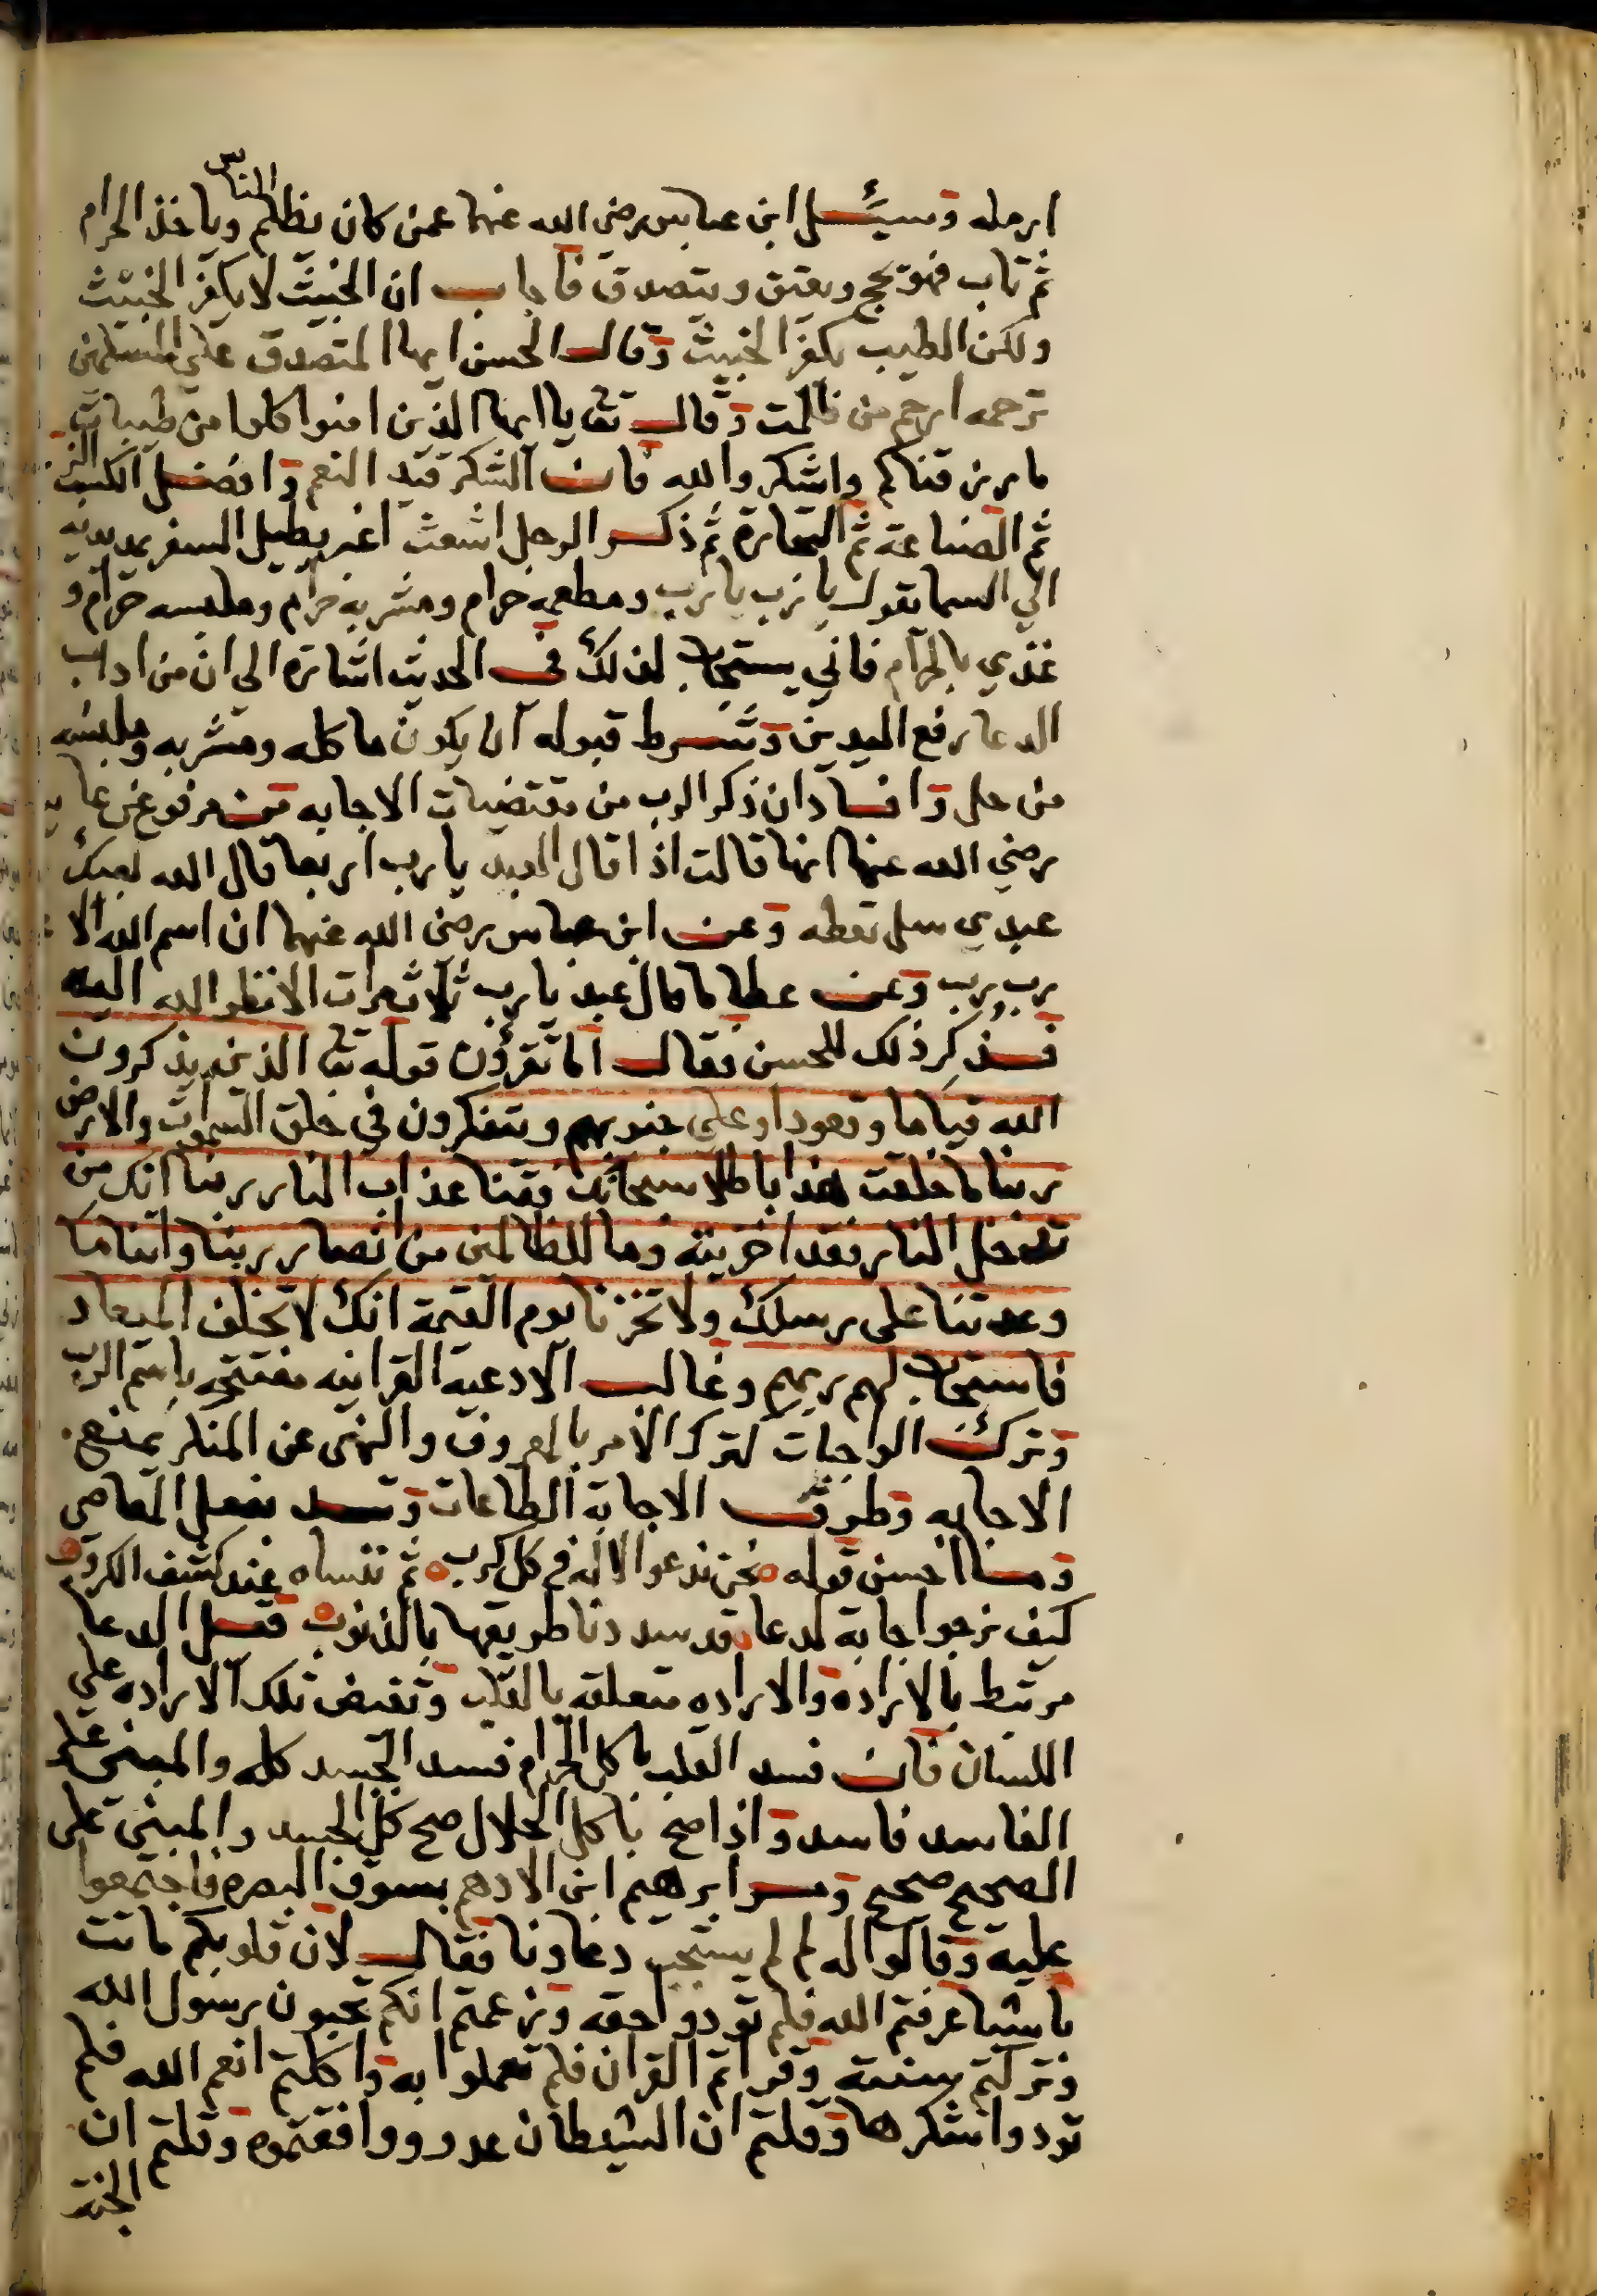 الناس
ارمله وسئل ابن عباس رضي الله عنهما عمن كان يظلم وياخذ الحرام
ثم تاب فهو يحج ويعتق ويتصدق فاجاب ان الخبيث لا يكفر الخبيث
ولكن الطيب يكفر الخبيث وقال الحسن ايها المتصدق على المسكين
ترحمه ارحم من ظلمت وقال تعا يا ايها الذين امنوا كلوا من طيبات
ما رزقناكم واشكروا لله فان الشكر قيد النعم وافضل الكسب الزر
ثم الصناعة ثم التجارة ثم ذكر الرجل اشعث اغبر يطيل السفر يمد يديه
الي السما يقول يا رب يا رب ومطعمه حرام ومشربه حرام وملبسه حرام و
غذي بالحرام فاني يستجاب لذلك في الحديث اشارة الي ان من اداب
الدعا رفع اليدين وشرط قبوله ان يكون ماكله ومشربه وملبسه
من حل وافاد ان ذكر الرب من مقتضيات الاجابه فمن مرفوع عن عا
رضي الله عنها انها قالت اذا قال العبد يا رب اربعا قال الله لبيك
عبدي سل تعطه وعن ابن عباس رضي الله عنهما ان اسم الله الا
رب رب وعن عطا ما قال عبد يا رب ثلاث مرات الا نظر الله اليه
فذكر ذلك للحسن فقال اما تقرؤن قوله تعا الذين يذكرون
الله قياما وقعودا وعلي جنوبهم ويتفكرون في خلق السموات والارض
ربنا ما خلقت هذا باطلا سبحانك فقنا عذاب النار ربنا انك من
تدخل النار فقد اخزيته وما للظالمين من انصار ربنا واتنا ما
وعدتنا على رسلك ولا تخزنا يوم القيمة انك لا تخلف الميعاد
فاستجاب لهم ربهم وغالب الادعية القرانيه مفتتحه باسم الرب
وترك الواجبات كترك الامر بالمعروف والنهى عن المنكر يمنع
الاجابه وطرق الاجابة الطاعات وتسد بفعل المعاصي
وما احسن قوله نحن ندعوا الاله في كل كرب ثم ننساه عند كشف الكروب
كيف نرجوا اجابة لدعا قد سددنا طريقها بالذنوب فعل الدعا
مرتبط بالارادة والاراده متعلقه بالقلب وتفيض تلك الاراده على
اللسان فان فسد القلب باكل الحرام فسد الجسد كله والمبنى على
الفاسد فاسد واذا صح باكل الحلال صح كل الجسد والمبنى على
الصحيح صحيح ومر ابرهيم ابن الادهم بسوق البصره فاجتمعوا
عليه وقالوا له لم لم يستجب دعاونا فقال لان قلوبكم ماتت
باشيا عرفتم الله فلم تودوا حقه وزعمتم انكم تحبون رسول الله
وتركتم سنته وقراتم القران فلم تعملوا به واكلتم انعم الله فلم
تودوا شكرها وقلتم ان الشيطان عدو ووافقتموه وقلتم ان
الجنة